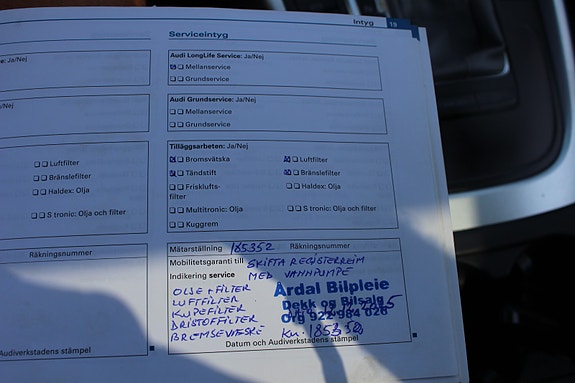 Intyg 19
Serviceintyg
e: Ja/Nej
Audi LongLife Service: Ja/Nej
Mellanservice
Grundservice
Audi Grundservice: Ja/Nej
Mellanservice
Grundservice
Tilläggsarbeten: Ja/Nej
Bromsvätska
Luftfilter
Tändstift
Bränslefilter
Frisklufts-
filter
Haldex: Olja
Multitronic: Olja
S tronic: Olja och filter
Kuggrem
Luftfilter
Bränslefilter
Haldex: Olja
S tronic: Olja och filter
Räkningsnummer
Audiverkstadens stämpel
Mätarställning 185352 Räkningsnummer
Mobilitetsgaranti till SKIFTA REGISTERREIM
Indikering service MED VANNPUMPE
OLJE + FILTER
LUFTFILTER
KUPEFILTER
DRISTOFFILTER
BREMSEVESKE
Årdal Bilpleie
Dekk og Bilsalg
Org 922 984 026
Km. 185352
Datum och Audiverkstadens stämpel